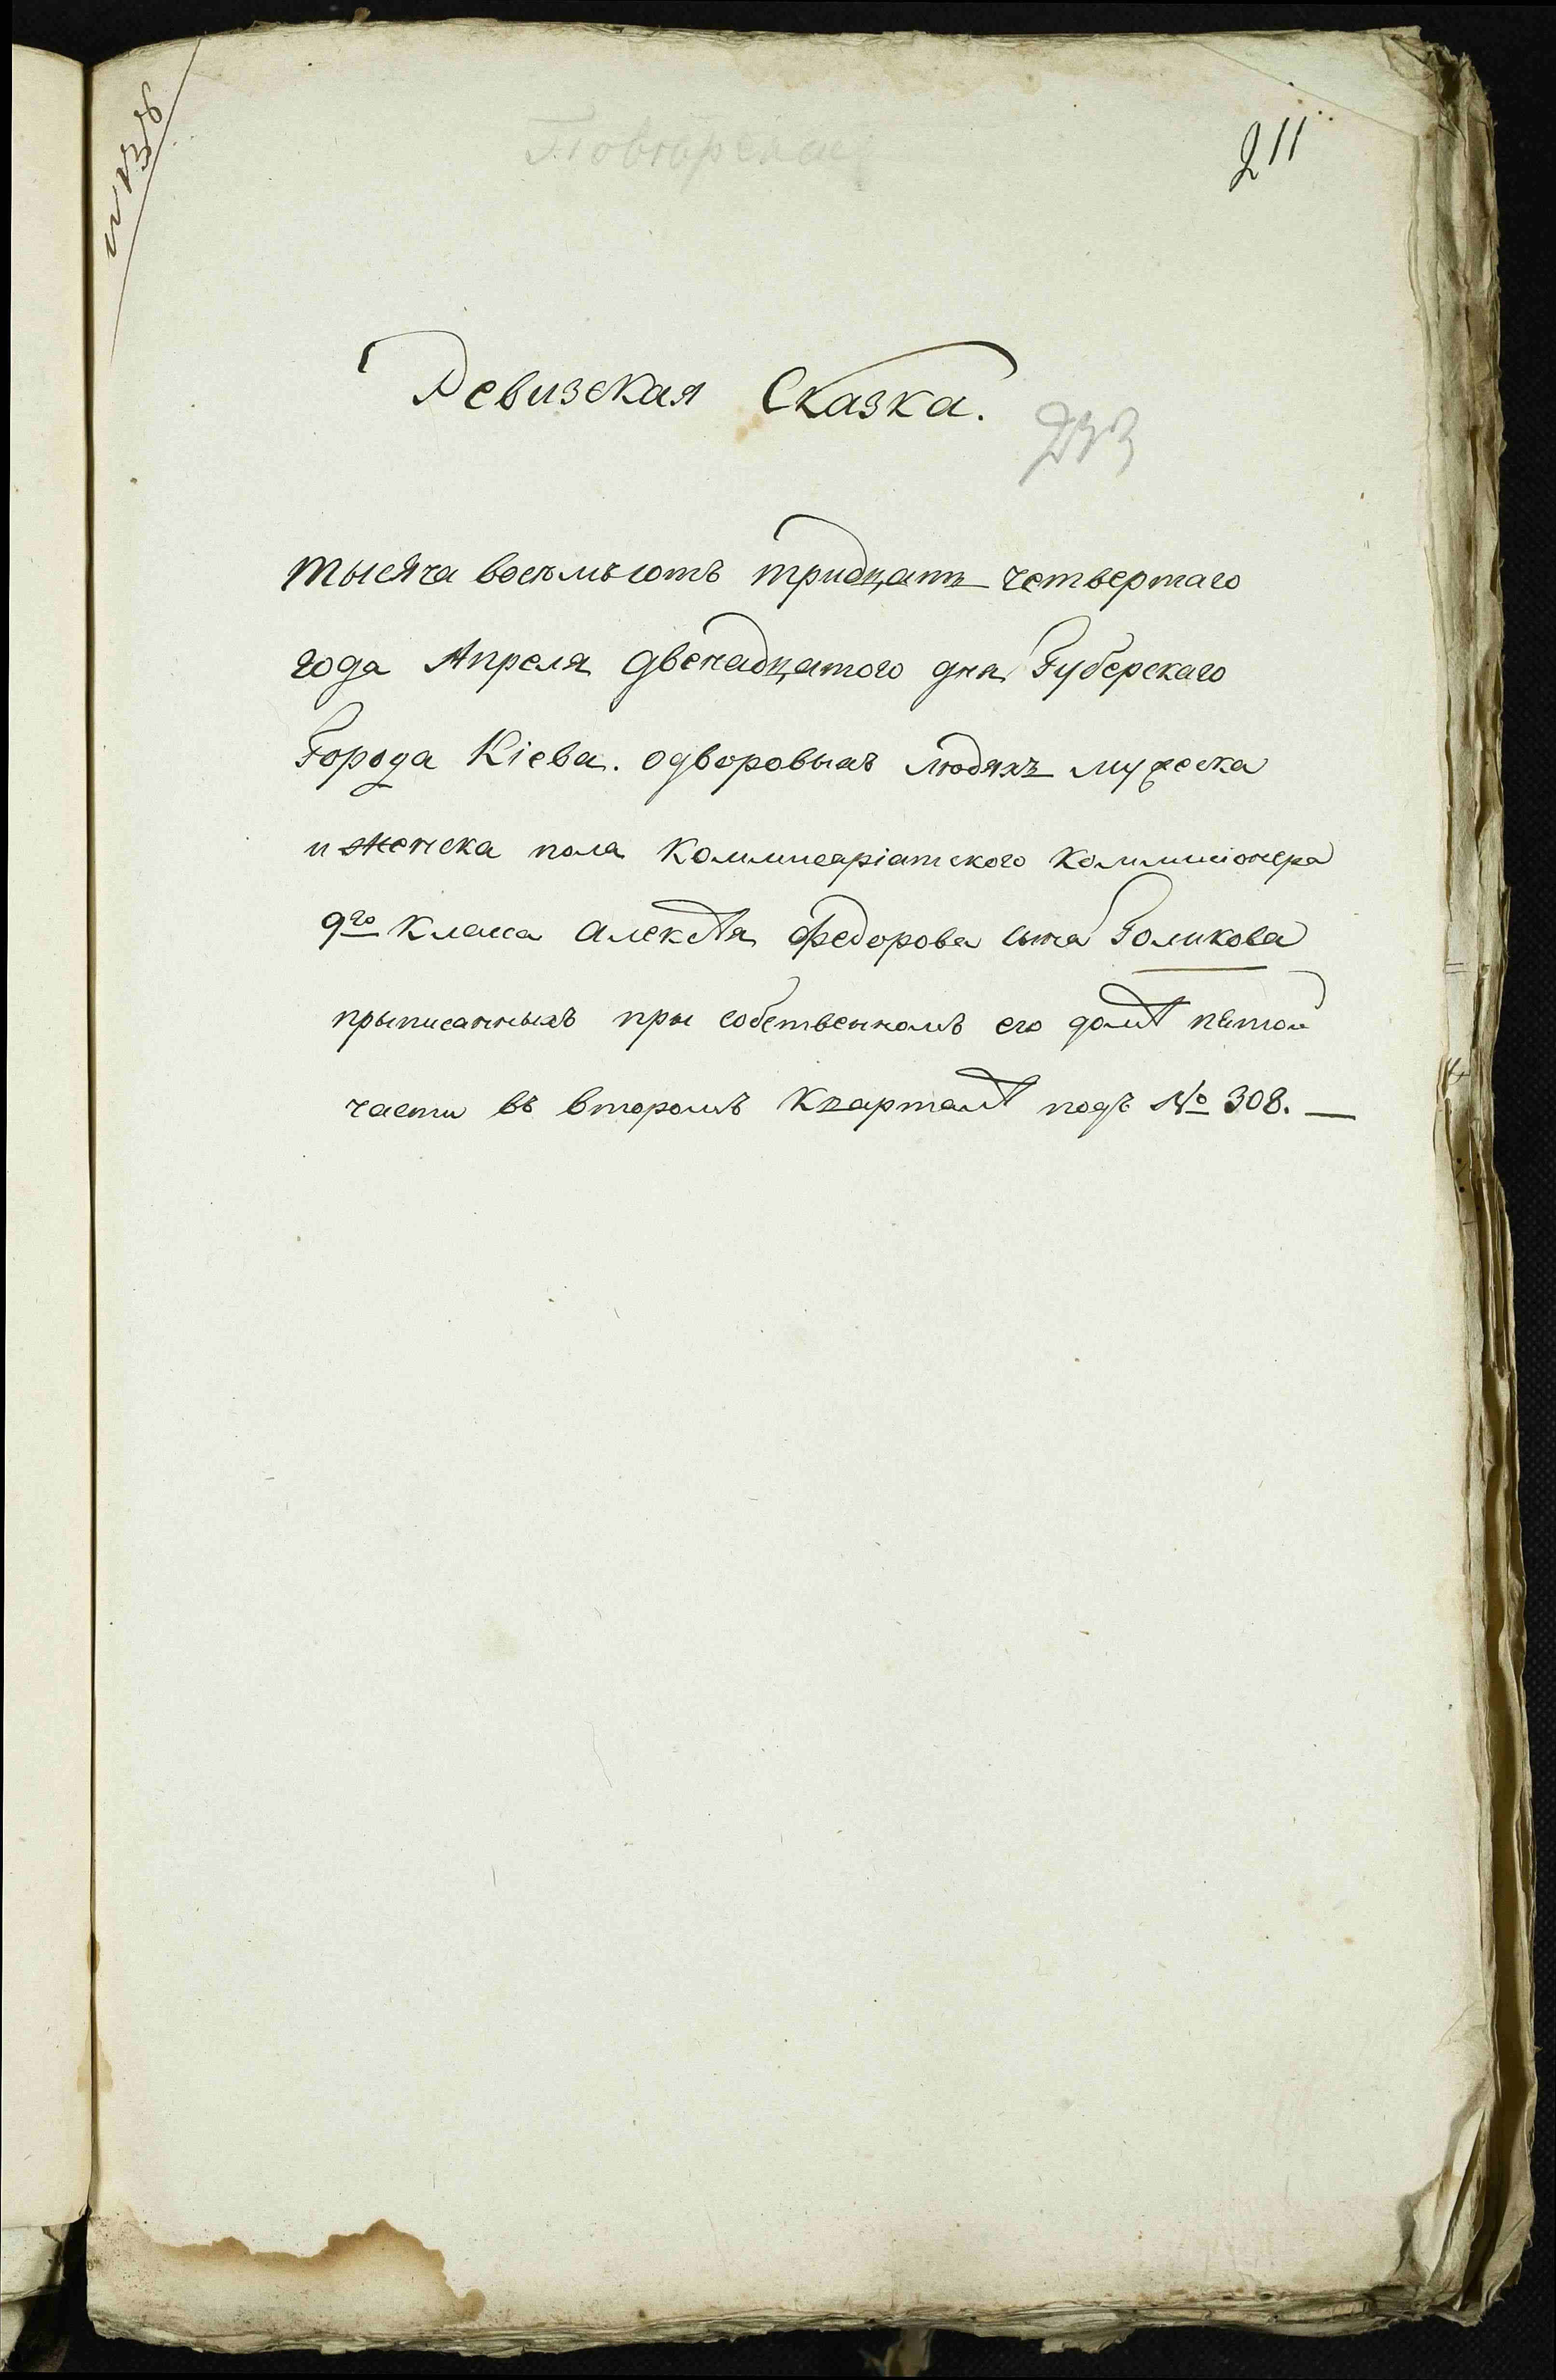 211
Ревизская Сказка.
тысяча восемьсотъ тридцать четвертаго
года Апреля двенадцатого дня Губерскаго
Города Кіева. одворовыхъ людяхъ мужеска
и женска пола Коммисаріатского коммисіонера
9го Класса Алексѣя Федорова сына Голикова
прыписанныхъ пры собственномъ его домѣ пятой
части въ второмъ Кварталѣ подъ № 308. —